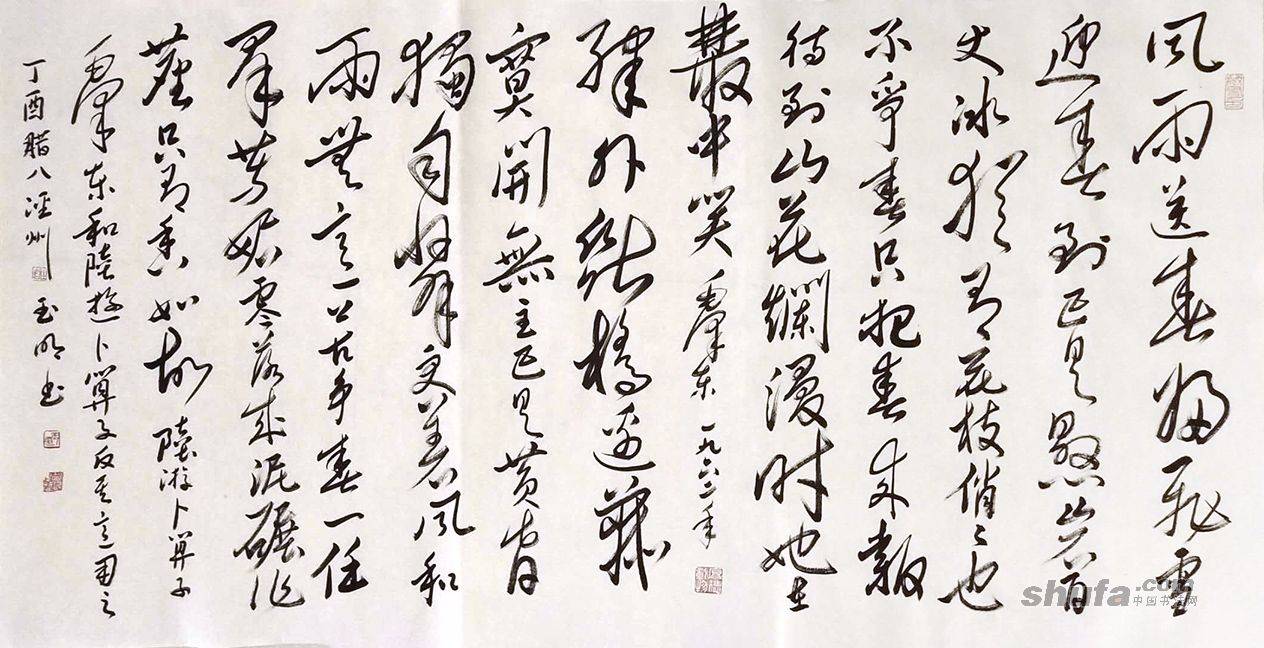 风雨送春歸飛雪
迎春到已是懸崖百
丈冰猶有花枝俏俏也
不爭春只把春来報
待到山花爛漫时她在
叢中笑 毛澤东 一九六二年
驛外斷橋邊寂
寞開無主已是黄昏
獨自愁更著风和
雨無意苦争春一任
羣芳妒零落成泥碾作
塵只有香如故 陸游卜算子
毛澤东和陸游卜算子反其意用之
丁酉腊八泾州 玉明书
shufa.com
中国书法网